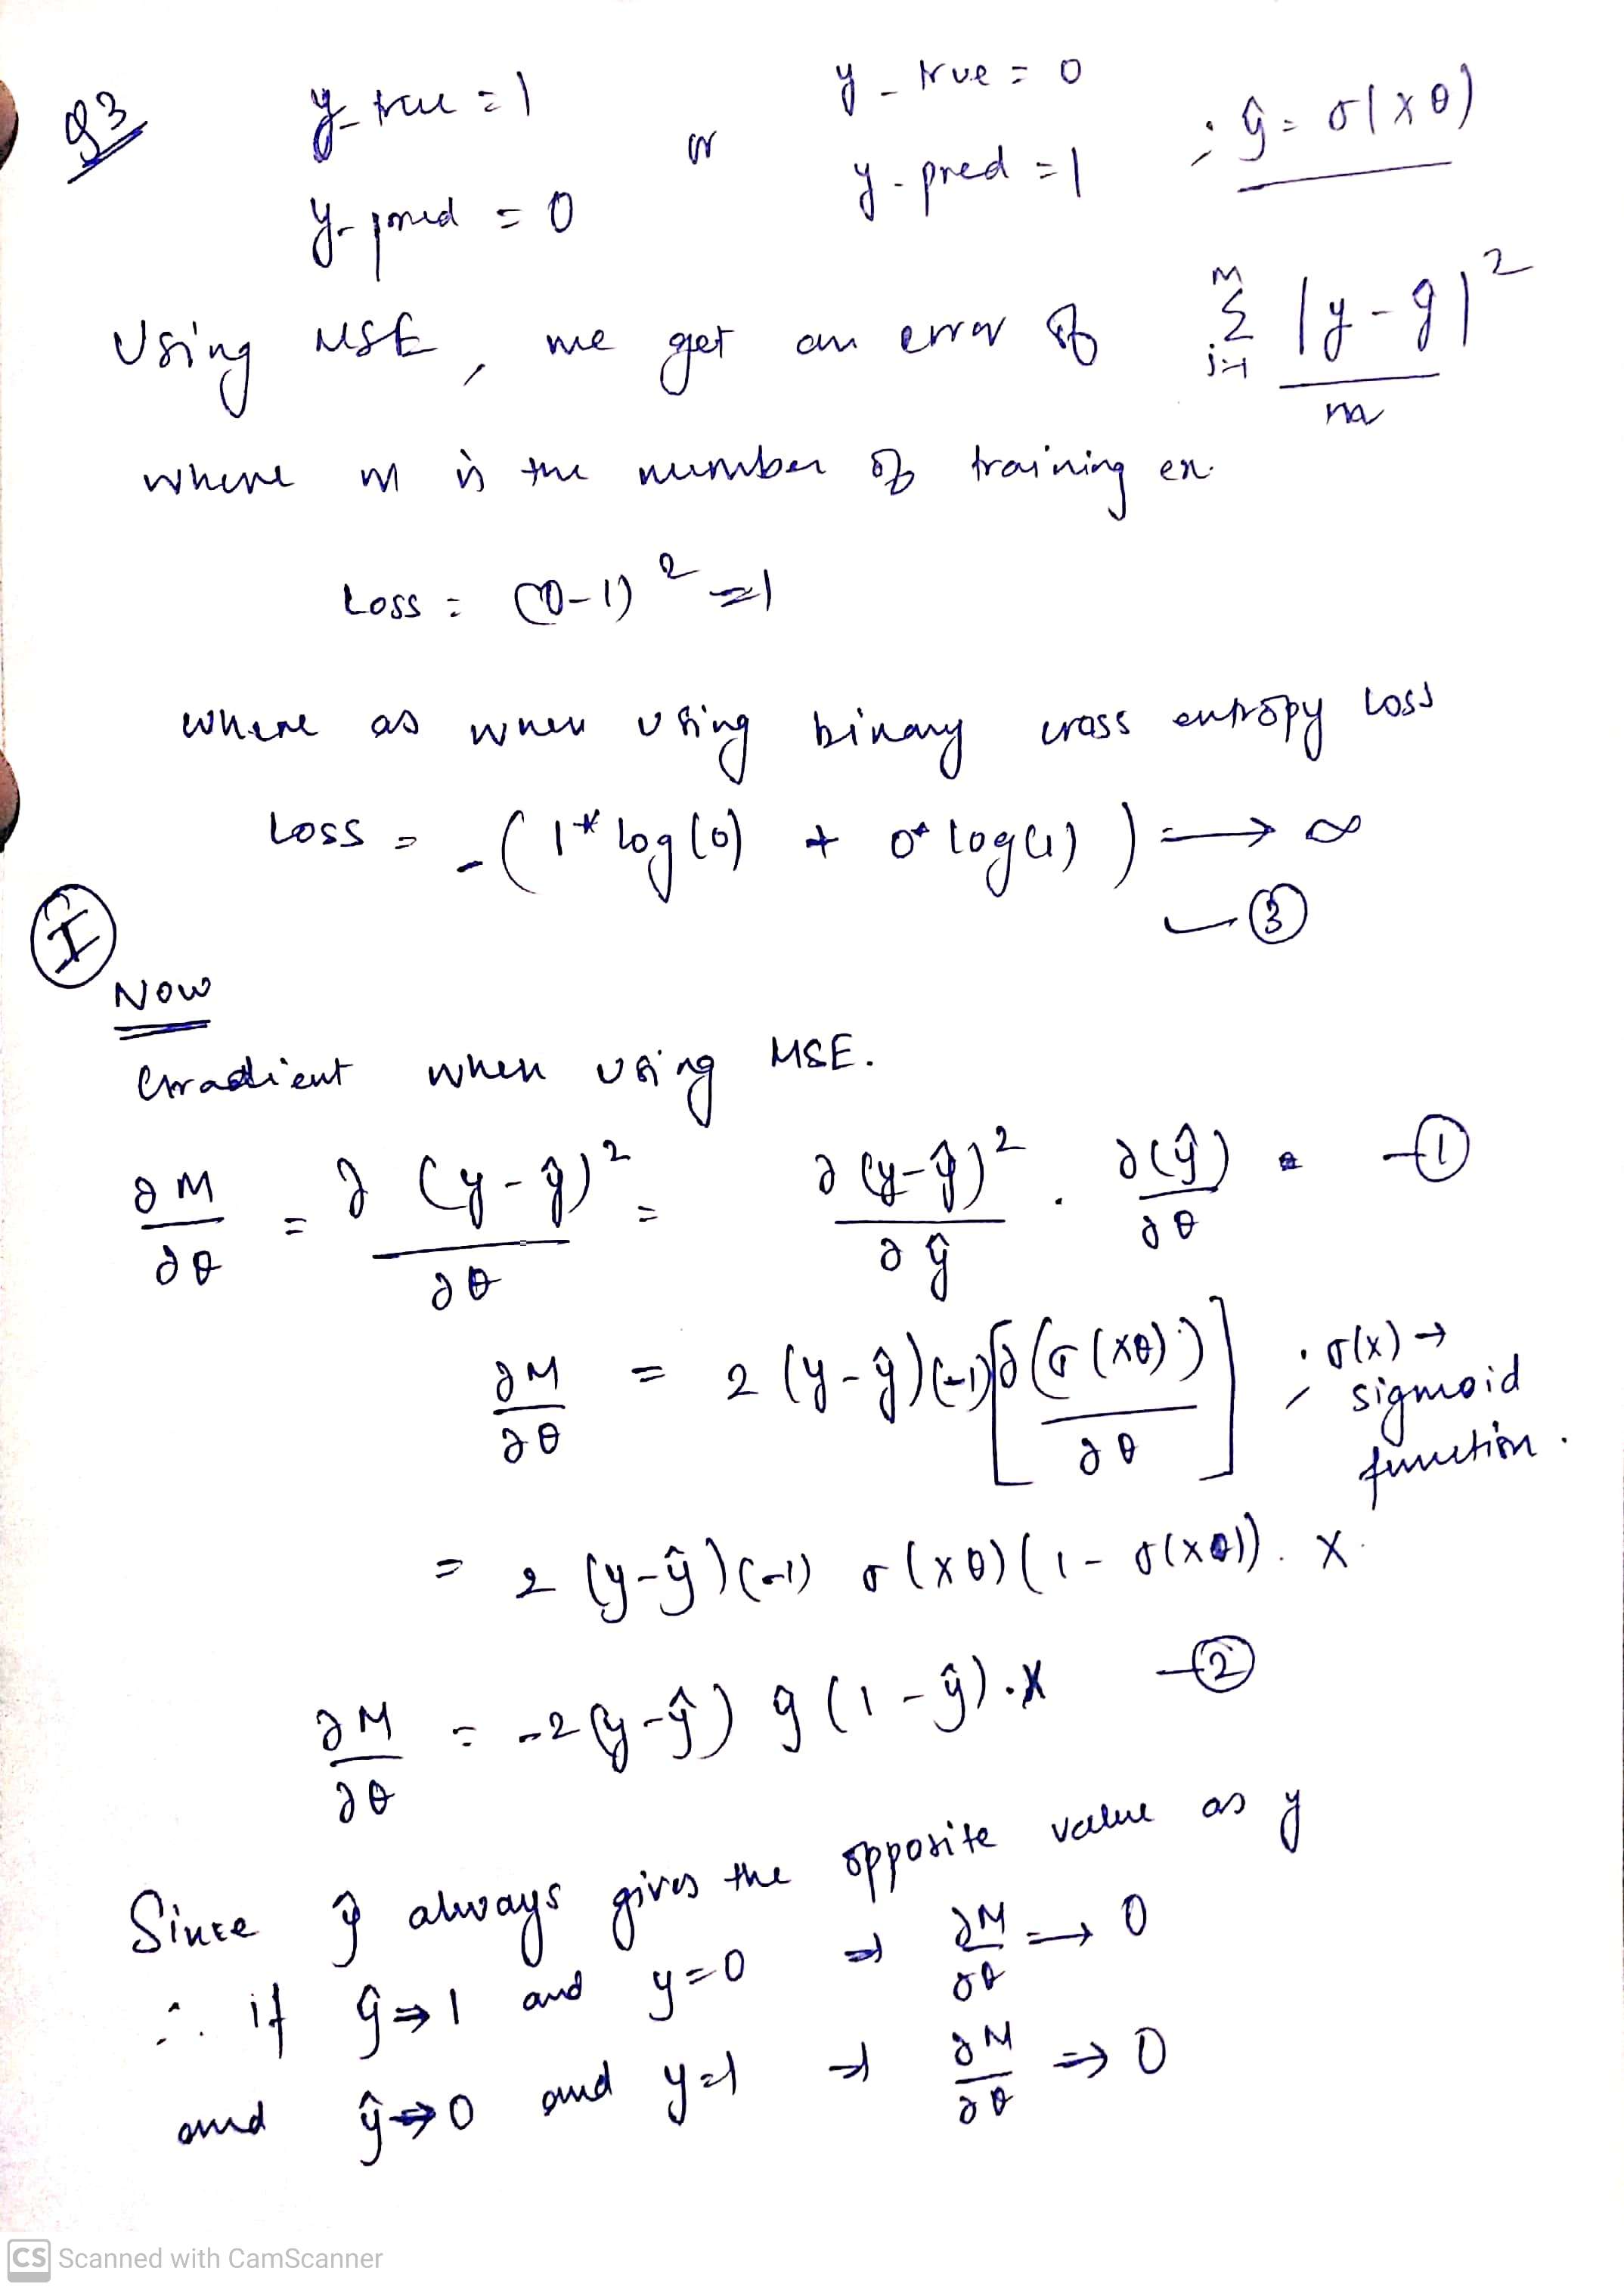 Q3 y_true = 1 or y_true = 0 ; ŷ = σ(xθ)
y_pred = 0 y_pred = 1
Using MSE, we get an error of Σ_{j=1}^{M} |y - ŷ|² / m
where m is the number of training ex.
Loss = (0-1)² = 1
where as when using binary cross entropy loss
Loss = -(1*log(0) + 0*log(1)) → ∞
— ③
Ⓘ
Now
Gradient when using MSE.
∂M/∂θ = ∂(y-ŷ)²/∂θ = ∂(y-ŷ)²/∂ŷ . ∂(ŷ)/∂θ — ①
∂M/∂θ = 2(y-ŷ)(-1)[∂(σ(xθ))/∂θ] ; σ(x) → sigmoid function.
= 2(y-ŷ)(-1) σ(xθ)(1 - σ(xθ)). x.
∂M/∂θ = -2(y-ŷ) ŷ(1-ŷ).x — ②
Since ŷ always gives the opposite value as y
∴ if ŷ⇒1 and y=0 ⇒ ∂M/∂θ → 0
and ŷ⇒0 and y=1 ⇒ ∂M/∂θ ⇒ 0
CS Scanned with CamScanner